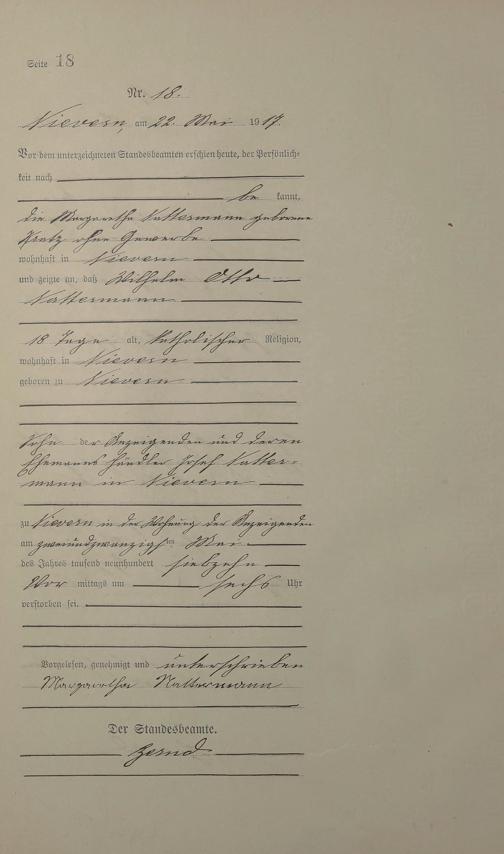 Seite 18
Nr. 18.
Nievern, am 22. Mai 1917.
Vor dem unterzeichneten Standesbeamten erschien heute, der Persönlich-
keit nach
be kannt,
die Margaretha Nattermann geborene
ohne Gewerbe
wohnhaft in Nievern
und zeigte an, daß Wilhelm Otto
Nattermann
18 Tage alt, katholischer Religion,
wohnhaft in Nievern
geboren zu Nievern
Sohn der Anzeigenden und deren
Ehemanns Händler Josef Natter-
mann in Nievern
zu Nievern in der Wohnung der Anzeigenden
am zweiundzwanzigsten Mai
des Jahres tausend neunhundert siebzehn
Vor mittags um sechs Uhr
verstorben sei.
Vorgelesen, genehmigt und unterschrieben
Margaretha Nattermann
Der Standesbeamte.